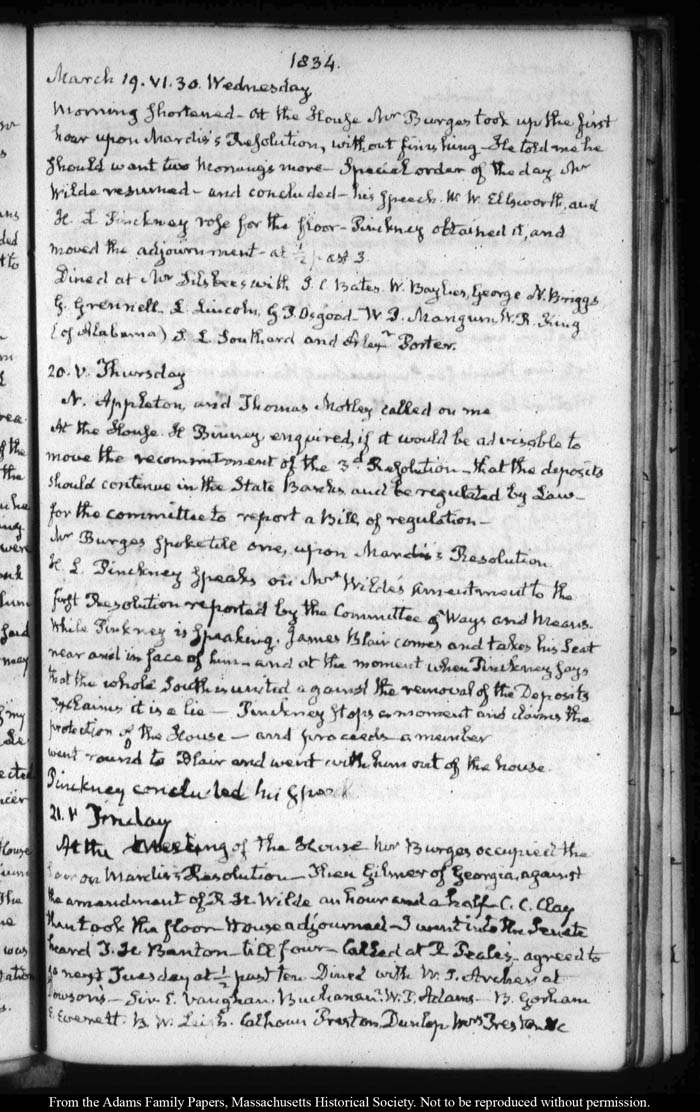 1834.
March 19. VI. 30. Wednesday
Morning shortened – At the House Mr Burges took up the first
hour upon Mardis's Resolution, without finishing – He told me he
should want two mornings more – Special order of the day Mr
Wilde resumed – and concluded – his speech. W. W. Ellsworth, and
H. L Pinckney rose for the floor – Pinckney obtained it, and
moved the adjournment – at ½ past 3.
Dined at Mr Silsbee's with I. C. Bates. W. Baylies, George N. Briggs
G. Grennell. L. Lincoln, G D. Osgood – W P. Mangum W. R. King
(of Alabama) S. L. Southard and Alexr Porter.
20. V. Thursday
N. Appleton, and Thomas Motley called on me
At the House. H Binney, enquired, if it would be advisable to
move the recommitment of the 3d Resolution – that the deposits
should continue in the State Banks, and be regulated by Law –
for the committee to report a Bill, of regulation –
Mr Burges spoke till one, upon Mardis's Resolution.
H. L. Pinckney speaks on Mr Wilde's amendment to the
first Resolution reported by the Committee of Ways and Means.
While Pinkney is speaking, James Blair comes and takes his seat
near and in face of him – and at the moment when Pinckney says
that the whole South is united against the removal of the Deposits
exclaims it is a lie – Pinckney stops a moment and claims the
protection of the House – and proceeds – a member
went round to Blair and went with him out of the house.
Pinckney concluded his speech
21. V Friday
At the meeting of the House Mr Burges occupied the
hour on Mardis's Resolution – Then Gilmer of Georgia, against
the amendment of R. H. Wilde an hour and a half – C. C. Clay
then took the floor – House adjourned – I went into the Senate
heard T. H Benton – till four – Called at Peale's – agreed to
go next Tuesday at ½ past ten – Dined with W. S. Archer at
Dowson's – Sir C. Vaughan. Buchanan. W. P. Adams – B. Gorham
E. Everett. B. W. Leigh. Calhoun Preston, Dunlop Mrs Preston &c
From the Adams Family Papers, Massachusetts Historical Society. Not to be reproduced without permission.